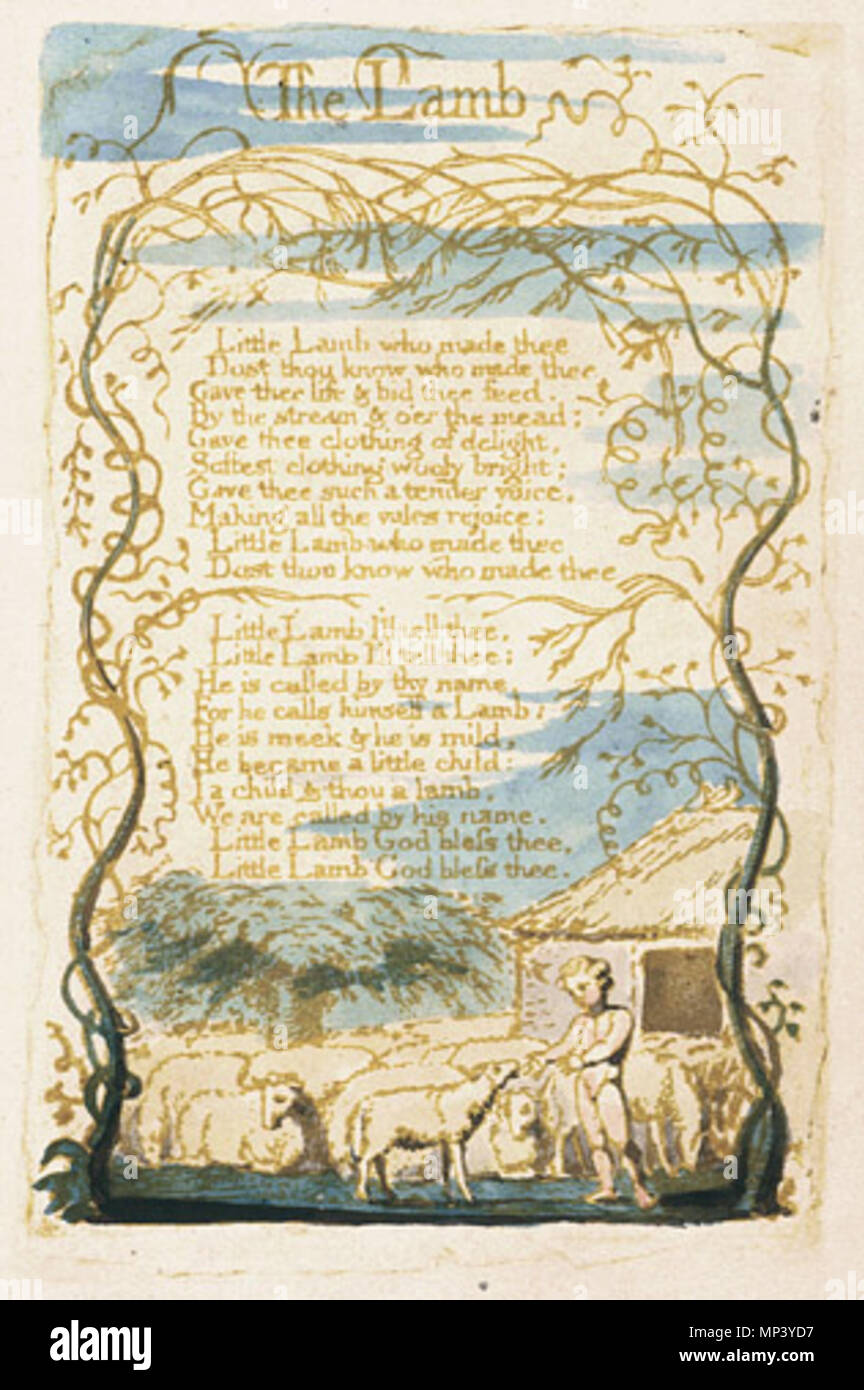 The Lamb
Little Lamb who made thee
Dost thou know who made thee
Gave thee life & bid thee feed.
By the stream & o'er the mead;
Gave thee clothing of delight,
Softest clothing wooly bright;
Gave thee such a tender voice,
Making all the vales rejoice:
Little Lamb who made thee
Dost thou know who made thee
Little Lamb I'll tell thee,
Little Lamb I'll tell thee;
He is called by thy name,
For he calls himself a Lamb:
He is meek & he is mild,
He became a little child:
I a child & thou a lamb,
We are called by his name.
Little Lamb God bless thee,
Little Lamb God bless thee.
alamy
Image ID: MP3YD7
www.alamy.com